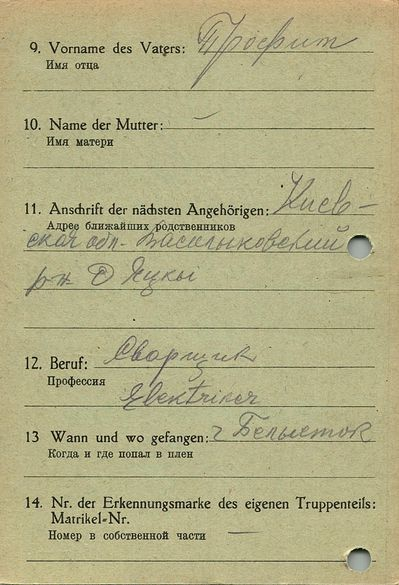 9. Vorname des Vaters: Трофим
Имя отца
10. Name der Mutter: –
Имя матери
11. Anschrift der nächsten Angehörigen: Киев-
Адрес ближайших родственников
ская обл. Васильковский
р-н с Яцки
12. Beruf: Сварщик
Профессия
Elektriker
13 Wann und wo gefangen: г Белысток
Когда и где попал в плен
14. Nr. der Erkennungsmarke des eigenen Truppenteils:
Matrikel-Nr.
Номер в собственной части —